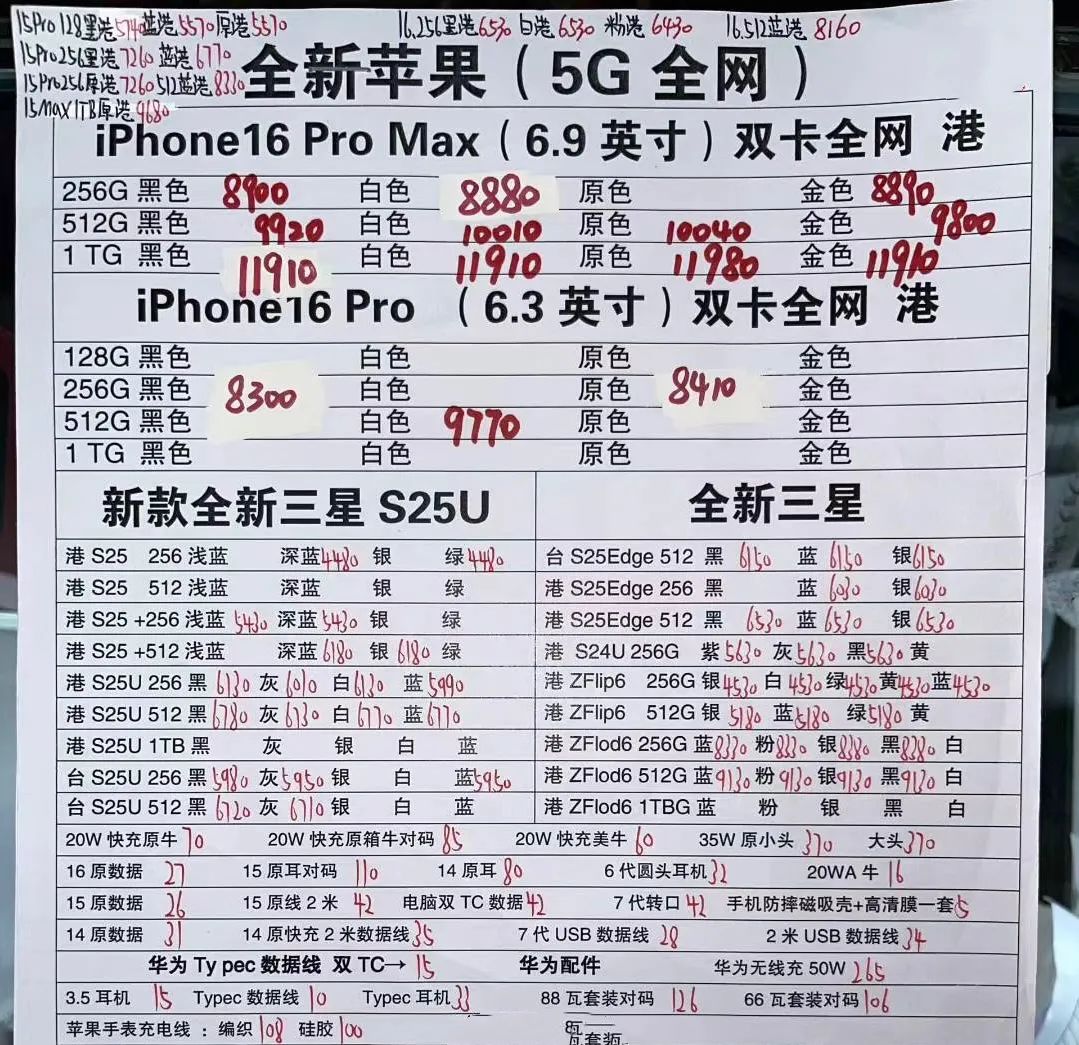 15Pro 128黑港5740蓝港5570原港5570 16.256黑港6530白港6530 粉港6430 16.512蓝港8160
15Pro256黑港7260蓝港6770
15Pro256原港7260 512蓝港8330
15Max 1TB原港9680
全新苹果（5G 全网）
iPhone16 Pro Max（6.9 英寸）双卡全网 港
256G 黑色 8900 白色 8880 原色 金色 8890
512G 黑色 9920 白色 10010 原色 10040 金色 9800
1 TG 黑色 11910 白色 11910 原色 11980 金色 11910
iPhone16 Pro （6.3 英寸）双卡全网 港
128G 黑色 白色 原色 金色
256G 黑色 8300 白色 原色 8410 金色
512G 黑色 白色 9770 原色 金色
1 TG 黑色 白色 原色 金色
新款全新三星 S25U
港 S25 256 浅蓝 深蓝4480 银 绿4480
港 S25 512 浅蓝 深蓝 银 绿
港 S25 +256 浅蓝 5430 深蓝5430 银 绿
港 S25 +512 浅蓝 深蓝6180 银 6180 绿
港 S25U 256 黑 6130 灰6010 白6130 蓝5990
港 S25U 512 黑6780 灰6730 白6770 蓝6770
港 S25U 1TB 黑 灰 银 白 蓝
台 S25U 256 黑5980 灰5950 银 白 蓝5950
台 S25U 512 黑6720 灰 6710 银 白 蓝
全新三星
台 S25Edge 512 黑 6150 蓝 6150 银6150
港 S25Edge 256 黑 蓝 6030 银6030
港 S25Edge 512 黑 6530 蓝 6530 银 6530
港 S24U 256G 紫5630 灰5630 黑5630 黄
港 ZFlip6 256G 银4530 白 4530 绿4530 黄4530 蓝4530
港 ZFlip6 512G 银 5180 蓝5180 绿5180 黄
港 ZFlod6 256G 蓝8330 粉8330 银8380 黑8380 白
港 ZFlod6 512G 蓝9130 粉 9130 银9130 黑9130 白
港 ZFlod6 1TBG 蓝 粉 银 黑 白
20W 快充原牛 70 20W 快充原箱牛对码 85 20W 快充美牛 60 35W 原小头 370 大头370
16 原数据 27 15 原耳对码 110 14 原耳 80 6 代圆头耳机 32 20WA 牛 16
15 原数据 26 15 原线 2 米 42 电脑双 TC 数据42 7 代转口 42 手机防摔磁吸壳+高清膜一套5
14 原数据 31 14 原快充 2 米数据线35 7 代 USB 数据线 28 2 米 USB 数据线34
华为 Ty pec 数据线 双 TC→ 15 华为配件 华为无线充 50W 265
3.5 耳机 15 Typec 数据线 10 Typec 耳机33 88 瓦套装对码 126 66 瓦套装对码106
苹果手表充电线 ：编织108 硅胶100